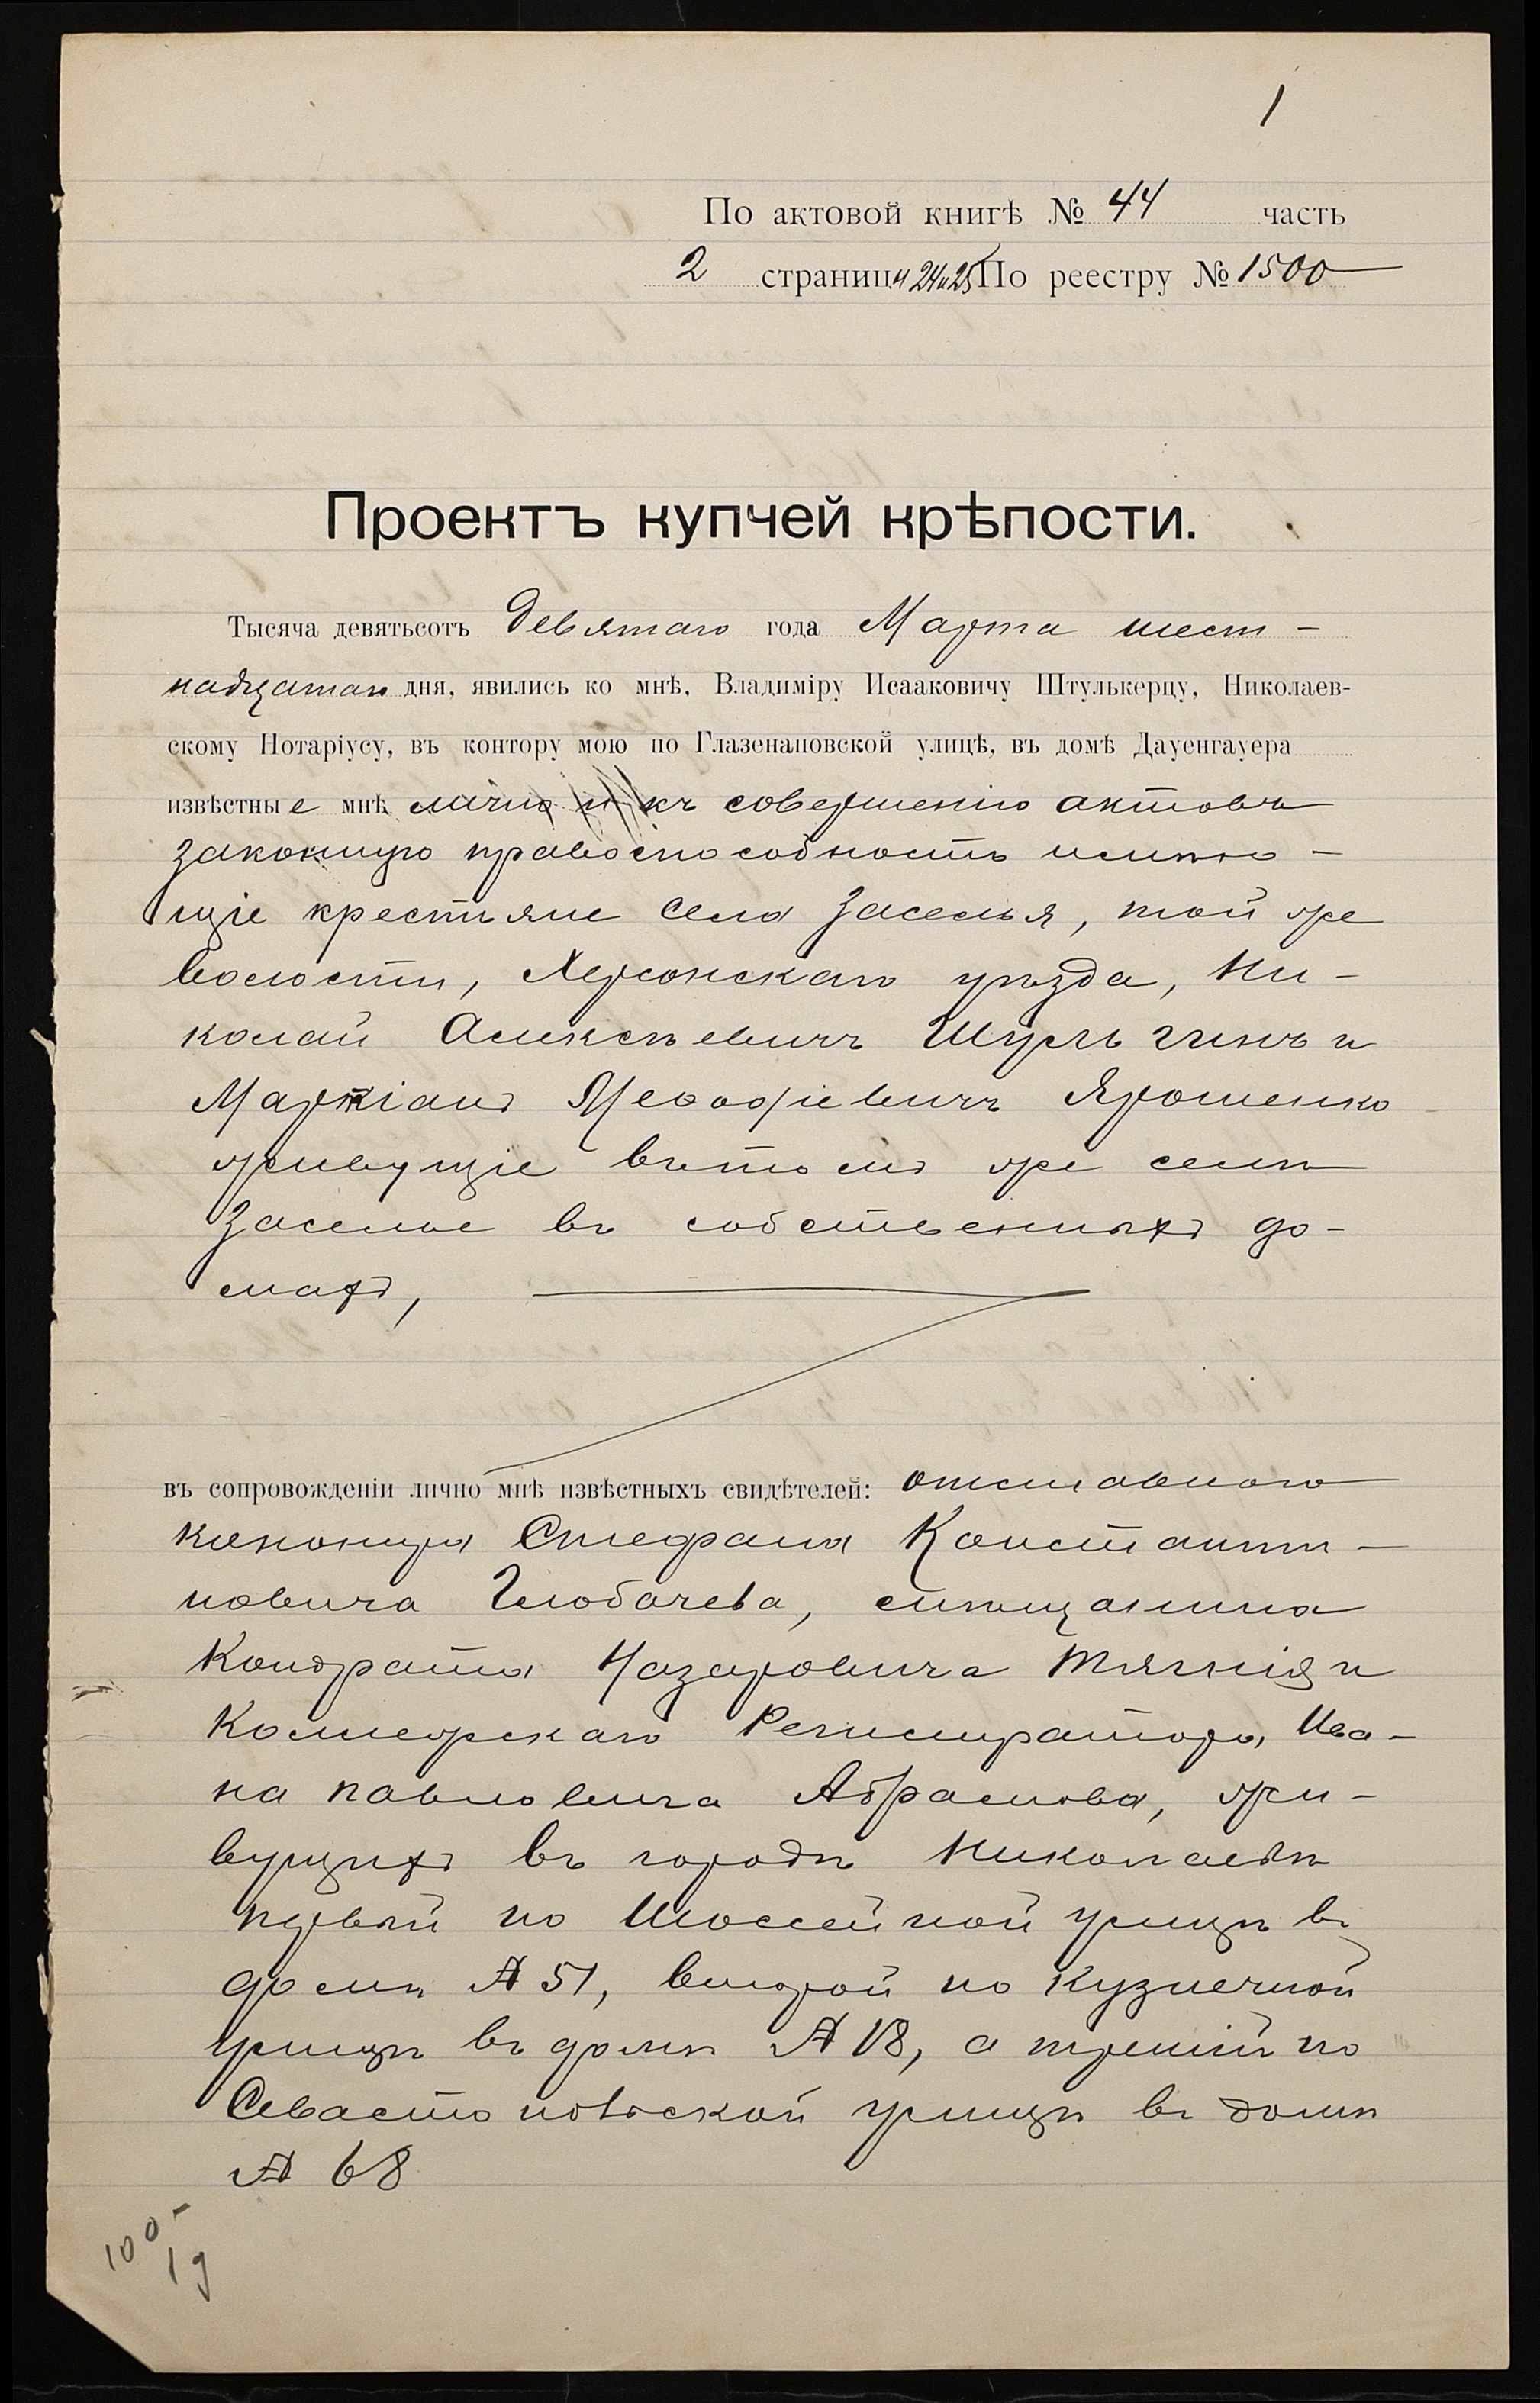 1
По актовой книгѣ № 44 часть
2 страницы 24 и 25 По реестру № 1500
Проектъ купчей крѣпости.
Тысяча девятьсотъ девятаго года Марта шест-
надцатаго дня, явились ко мнѣ, Владиміру Исааковичу Штулькерцу, Николаев-
скому Нотаріусу, въ контору мою по Глазенаповской улицѣ, въ домѣ Дауенгауера
извѣстные мнѣ лично и къ совершенію актовъ
законную правоспособность имѣю-
щіе крестьяне села Заселья, той же
волости, Херсонскаго уѣзда, Ни-
колай Алексѣевичъ Шульгинъ и
Маркіанъ Меѳодіевичъ Ярошенко
живущіе въ томъ же селѣ
Заселье въ собственныхъ до-
махъ,
въ сопровожденіи лично мнѣ извѣстныхъ свидѣтелей: отставного
канонира Стефана Константи-
новича Глобачева, мѣщанина
Кондрата Назаровича Тягнія и
Коллежскаго Регистратора, Ива-
на Павловича Абрамова, жи-
вущихъ въ городѣ Николаевѣ
первый по Шоссейной улицѣ въ
домѣ № 51, второй по Кузнечной
улицѣ въ домѣ № 18, а третій по
Севастопольской улицѣ въ домѣ
№ 68
100-
19